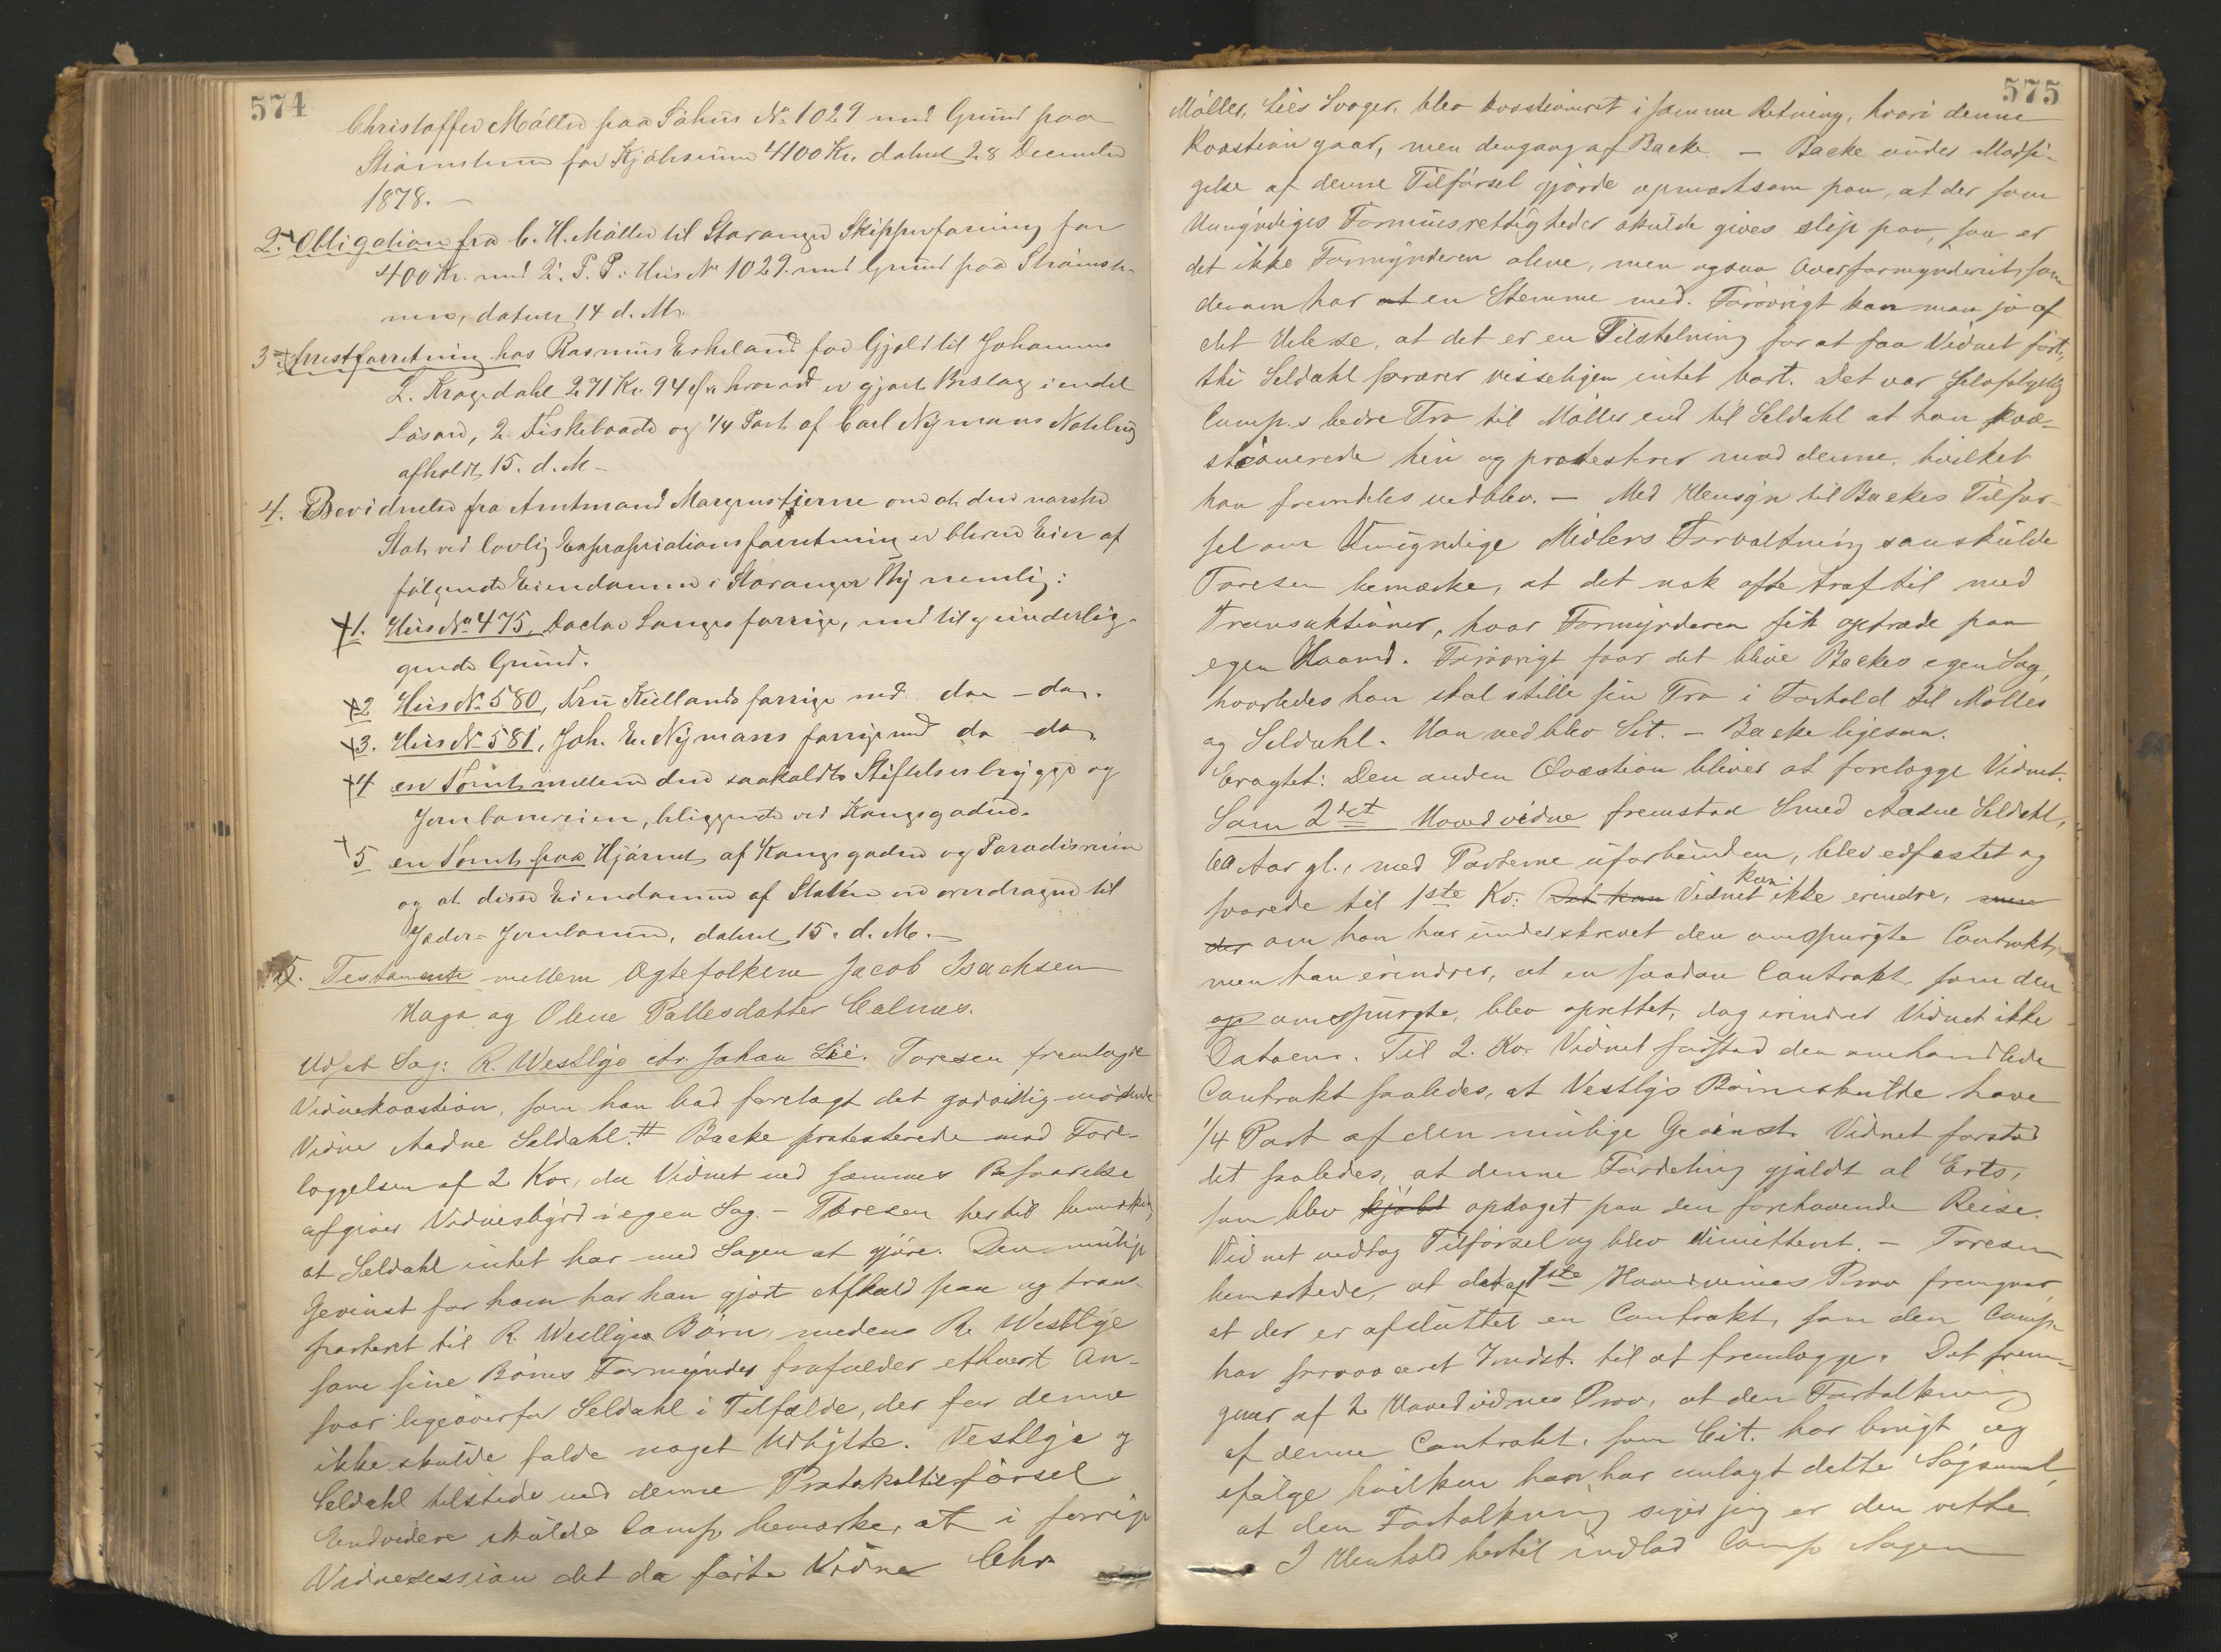 574
Christoffer Møller paa Søhus No 1029 med Grund paa
Strømstenen for Kjøbesum 4100 Kr. dateret 28 December
1878. —
2. Obligation fra C. H. Møller til Stavanger Skipperforening for
400 Kr. med 2. P. P. i Hus No 1029 med Grund paa Strømste-
nen, dateret 14 d. M.
3. Arrestforretning hos Rasmus Eskeland for Gjeld til Johannes
L. Kragedahl 271 Kr. 94 Øre hvorved er gjort Beslag i endel
Løsøre, 2 Fiskebaade og 1/4 Part af Carl Nymans Notebrug
afholdt 15. d. M —
4. Bevidnelse fra Amtmand Morgenstjerne om at den norske
Stat ved lovlig Expropriationsforretning er bleven Eier af
følgende Eiendomme i Stavanger By nemlig:
1. Hus No 475, Doctor Langes forrige, med tilgrunderlig-
gende Grund.
2 Hus No 580, Fru Kiellands forrige med do — do.
3. Hus No 581, Joh. E. Nymans forrige med do — do,
4 en Tomt mellem den saakaldte Stiftelsesbrygge og
Jernbaneveien, beliggende ved Kongsgaden.
5 en Tomt paa Hjørnet af Kongsgaden og Paradisveien
og at disse Eiendomme af Staten er overdragne til
Jæder-Jernbanen, dateret 15. d. M. —
5. Testamente mellem Ægtefolkene Jacob Isachsen
Haga og Olene Pallesdatter Calnæs.
Udsat Sag: R. Westlye ctr. Johan Lie. Toresen fremlagde
Vidnekvæstion, som han bad forelagt det godvillig mødende
Vidne Aadne Seldahl. # Backe protesterede mod Fore-
læggelsen af 2 Kv., da Vidnet ved sammes Besvarelse
afgiver Vidnesbyrd i egen Sag. — Toresen hertil bemærkede
at Seldahl intet har med Sagen at gjøre. Den mulige
Gevinst for ham har han gjort Afkald paa og trans-
porteret til R. Westlyes Børn, medens R. Westlye
som sine Børns Formynder frafalder ethvert An-
svar ligeoverfor Seldahl i Tilfælde, der for denne
ikke skulde falde noget Udbytte. Vestlye og
Seldahl tilstede ved denne Protokoltilførsel
Endvidere skulde Comp. bemærke, at i forrige
Vidnesession det da førte Vidne Chr.
575
Møller, Lies Svoger, blev kvæstioneret i samme Retning, hvori denne
Kvæstion gaar, men dengang af Backe — Backe under Modsi-
gelse af denne Tilførsel gjorde opmærksom paa, at der som
Umyndiges Formuesrettigheder skulde gives slip paa, saa er
det ikke Formynderen alene, men ogsaa Overformynderiet, som
derom har at en Stemme med. Forøvrigt kan man jo af
det Hele se, at det er en Tilstelning for at faa Vidnet ført,
thi Seldahl forærer visseligen intet bort. Det var
Comp.s bedre Tro til Møller end til Seldahl at han kvæ-
stionerede hin og protesterer mod denne, hvilket
han fremdeles vedblev. — Med Hensyn til Backes Tilfør-
sel om Umyndige Midlers Forvaltning saa skulde
Toresen bemærke, at det nok ofte traf til med
Transaktioner, hvor Formynderen fik optræde paa
egen Haand. Forøvrigt faar det blive Backes egen Sag,
hvorledes han skal stille sin Tro i Forhold til Møller
og Seldahl. Han vedblev Sit. — Backe ligesaa.
Eragtet: Den anden Qvæstion bliver at forelægge Vidnet.
Som 2det Hovedvidne fremstod Smed Aadne Seldahl,
60 Aar gl., med Parterne uforbunden, blev edfæstet og
svarede til 1ste Kv.: Det kan Vidnet kan ikke erindre, men
der om han har underskrevet den omspurgte Contrakt,
men han erindrer, at en saadan Contrakt, som den
op omspurgte, blev oprettet, dog erindrer Vidnet ikke
Datoen. Til 2. Kv. Vidnet forstod den omhandlede
Contrakt saaledes, at Vestlys Børn skulde have
1/4 Part af den mulige Gevinst. Vidnet forstod
det saaledes, at denne Fordeling gjaldt al Erts,
som blev kjøbt opdaget paa den forehavende Reise.
Vidnet vedtog Tilførsel og blev dimitteret. — Toresen
bemærkede, at det af 1ste Hovedvidnes Prov fremgaar,
at der er afsluttet en Contrakt, som den Comp.
har provoceret Indst. til at fremlægge. Det frem-
gaar af 2 Hovedvidnes Prov, at den Fortolkning
af denne Contrakt, som Cit. har brugt og
ifølge hvilken han har anlagt dette Søgsmaal,
at den Fortolkning siger jeg er den rette.
I Henhold hertil indlod Comp. Sagen